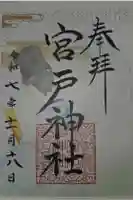 奉拝
宮戸神社
令和七年十二月十八日